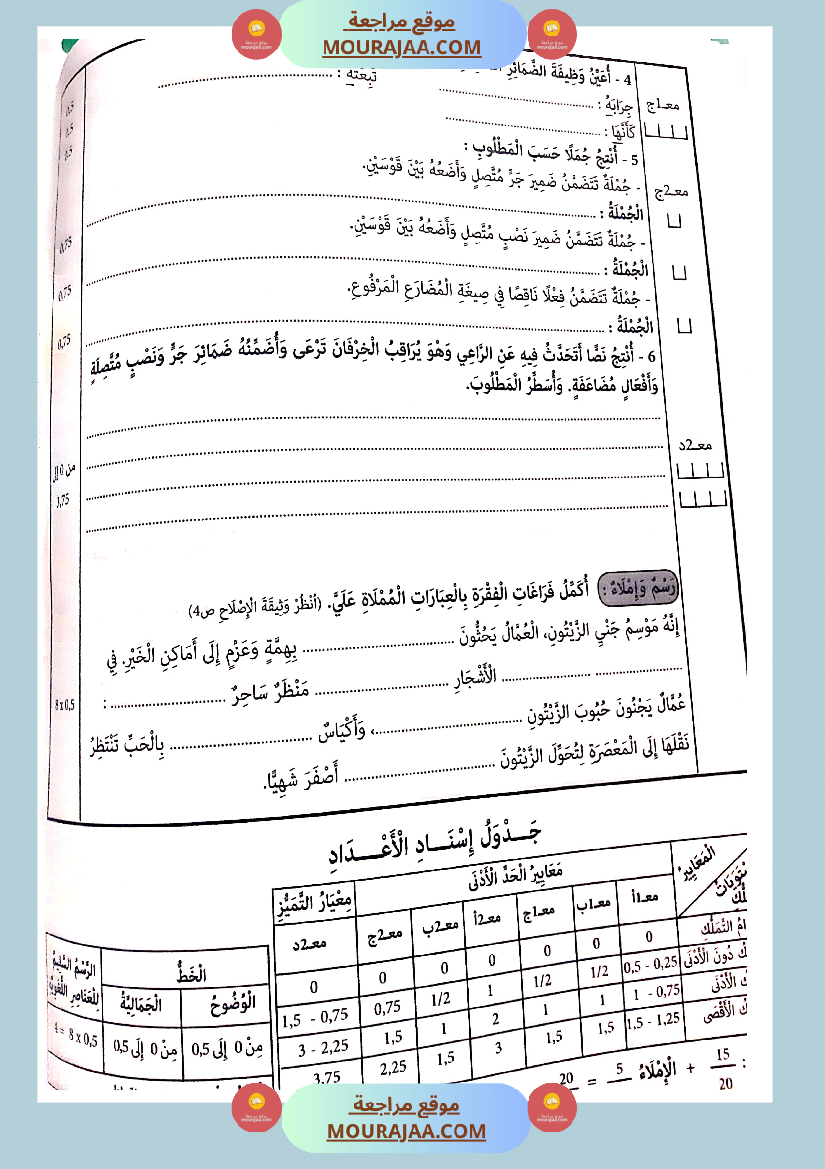 موقع مراجعة
MOURAJAA.COM
4 - أُعَيِّنُ وَظِيفَةَ الضَّمَائِرِ
تَبِعَتْهُ : ..............................
معـ1ج
جِرَابَهُ : ..............................
0,5
كَأَنَّهَا : ..............................
0,5
5 - أُنْتِجُ جُمَلًا حَسَبَ الْمَطْلُوبِ :
0,5
معـ2ج
- جُمْلَةٌ تَتَضَمَّنُ ضَمِيرَ جَرٍّ مُتَّصِلٍ وَأَضَعُهُ بَيْنَ قَوْسَيْنِ.
الْجُمْلَةُ : ..............................
0,75
- جُمْلَةٌ تَتَضَمَّنُ ضَمِيرَ نَصْبٍ مُتَّصِلٍ وَأَضَعُهُ بَيْنَ قَوْسَيْنِ.
الْجُمْلَةُ : ..............................
0,75
- جُمْلَةٌ تَتَضَمَّنُ فِعْلًا نَاقِصًا فِي صِيغَةِ الْمُضَارَعِ الْمَرْفُوعِ.
الْجُمْلَةُ : ..............................
0,75
6 - أُنْتِجُ نَصًّا أَتَحَدَّثُ فِيهِ عَنِ الرَّاعِي وَهْوَ يُرَاقِبُ الْخِرْفَانَ تَرْعَى وَأُضَمِّنُهُ ضَمَائِرَ جَرٍّ وَنَصْبٍ مُتَّصِلَةٍ
وَأَفْعَالٍ مُضَاعَفَةٍ. وَأُسَطِّرُ الْمَطْلُوبَ.
معـ2د
من 0 إلى
3,75
رَسْمٌ وَإِمْلَاءٌ : أُكَمِّلُ فَرَاغَاتِ الْفِقْرَةِ بِالْعِبَارَاتِ الْمُمْلَاةِ عَلَيَّ. (أنْظُرْ وَثِيقَةَ الْإِصْلَاحِ ص4)
إِنَّهُ مَوْسِمُ جَنْيِ الزَّيْتُونِ، الْعُمَّالُ يَحُثُّونَ .............................. بِهِمَّةٍ وَعَزْمٍ إِلَى أَمَاكِنِ الْخَيْرِ. فِي
.................... .................... الْأَشْجَارِ .............................. مَنْظَرٌ سَاحِرٌ .............................. :
8x0,5
عُمَّالٌ يَجْنُونَ حُبُوبَ الزَّيْتُونِ ..............................، وَأَكْيَاسٌ .............................. بِالْحَبِّ تَنْتَظِرُ
نَقْلَهَا إِلَى الْمَعْصَرَةِ لِتُحَوِّلَ الزَّيْتُونَ .............................. أَصْفَرَ شَهِيًّا.
جَـــدْوَلُ إِسْنَـــادِ الْأَعْـــدَادِ
الْمَعَايِيرُ
مَعَايِيرُ الْحَدِّ الْأَدْنَى
مِعْيَارُ التَّمَيُّزِ
معـ1أ معـ1ب معـ1ج معـ2أ معـ2ب معـ2ج معـ2د
0 0 0 0 0 0 0
0,25 - 0,5 1/2 1/2 1 1/2 0,75 0,75 - 1,5
0,75 - 1 1 1 2 1 1,5 2,25 - 3
1,25 - 1,5 1,5 1,5 3 1,5 2,25 3,75
الْخَطُّ
الرَّسْمُ السَّلِيمُ
الْوُضُوحُ الْجَمَالِيَّةُ
مِنْ 0 إِلَى 0,5 مِنْ 0 إِلَى 0,5
8 x 0,5 = 4
: 15/20 + الْإِمْلَاءُ 5 = 20
موقع مراجعة
MOURAJAA.COM